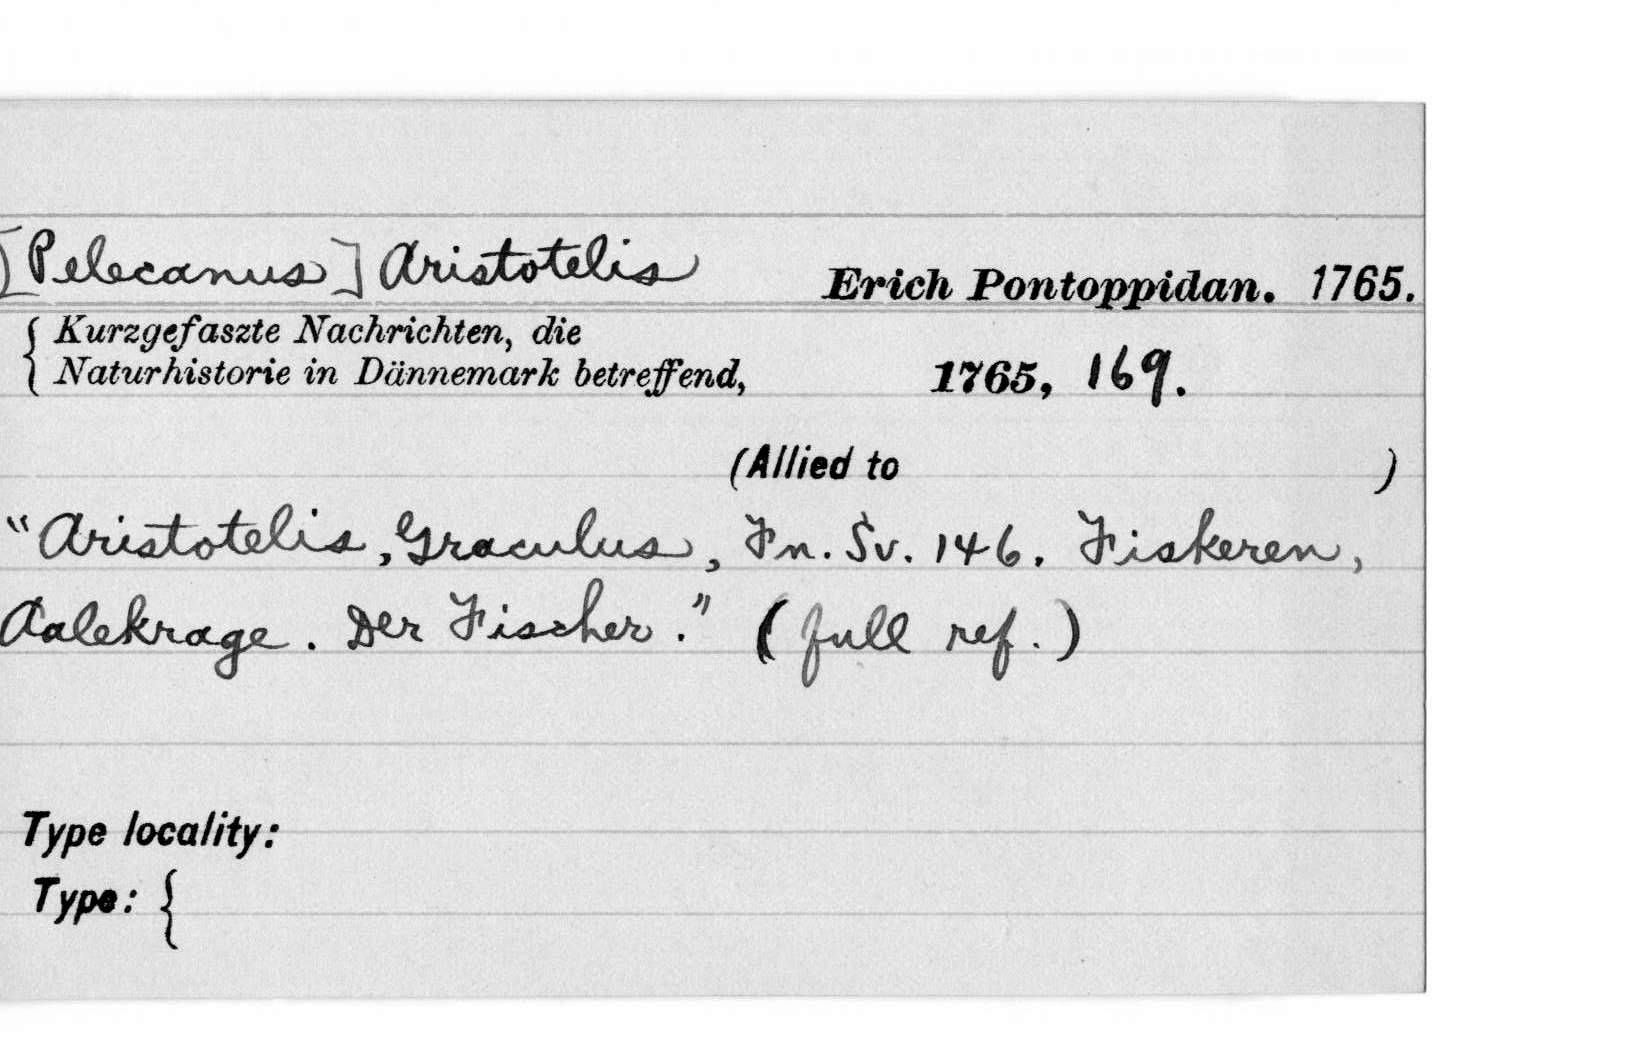 [Pelecanus] Aristotelis Erich Pontoppidan. 1765.
{ Kurzgefaszte Nachrichten, die
Naturhistorie in Dännemark betreffend, 1765, 169.
(Allied to )
"Aristotelis, Graculus, Fn. Sv. 146. Fiskeren,
Aalekrage. Der Fischer." (full ref.)
Type locality:
Type: {